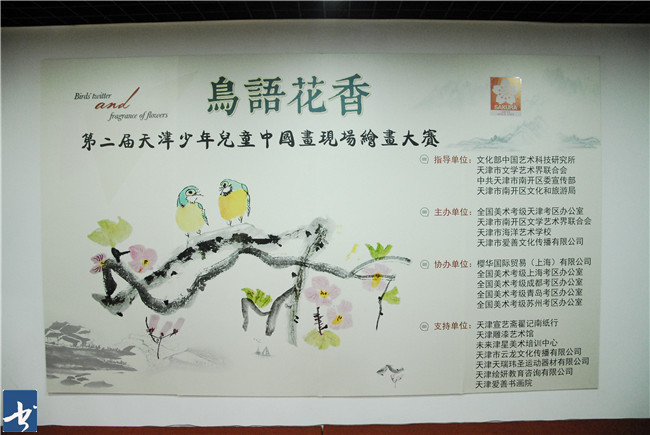 Birds' twitter
and
fragrance of flowers
鳥語花香
SAKURA
第二届天津少年兒童中國畫現場繪畫大賽
指导单位：文化部中国艺术科技研究所
天津市文学艺术界联合会
中共天津市南开区委宣传部
天津市南开区文化和旅游局
主办单位：全国美术考级天津考区办公室
天津市南开区文学艺术界联合会
天津市海洋艺术学校
天津市爱善文化传播有限公司
协办单位：樱华国际贸易（上海）有限公司
全国美术考级上海考区办公室
全国美术考级成都考区办公室
全国美术考级青岛考区办公室
全国美术考级苏州考区办公室
支持单位：天津宣艺斋翟记南纸行
天津雕漆艺术馆
未来津星美术培训中心
天津市云龙文化传播有限公司
天津天瑞玮圣运动器材有限公司
天津绘妍教育咨询有限公司
天津爱善书画院